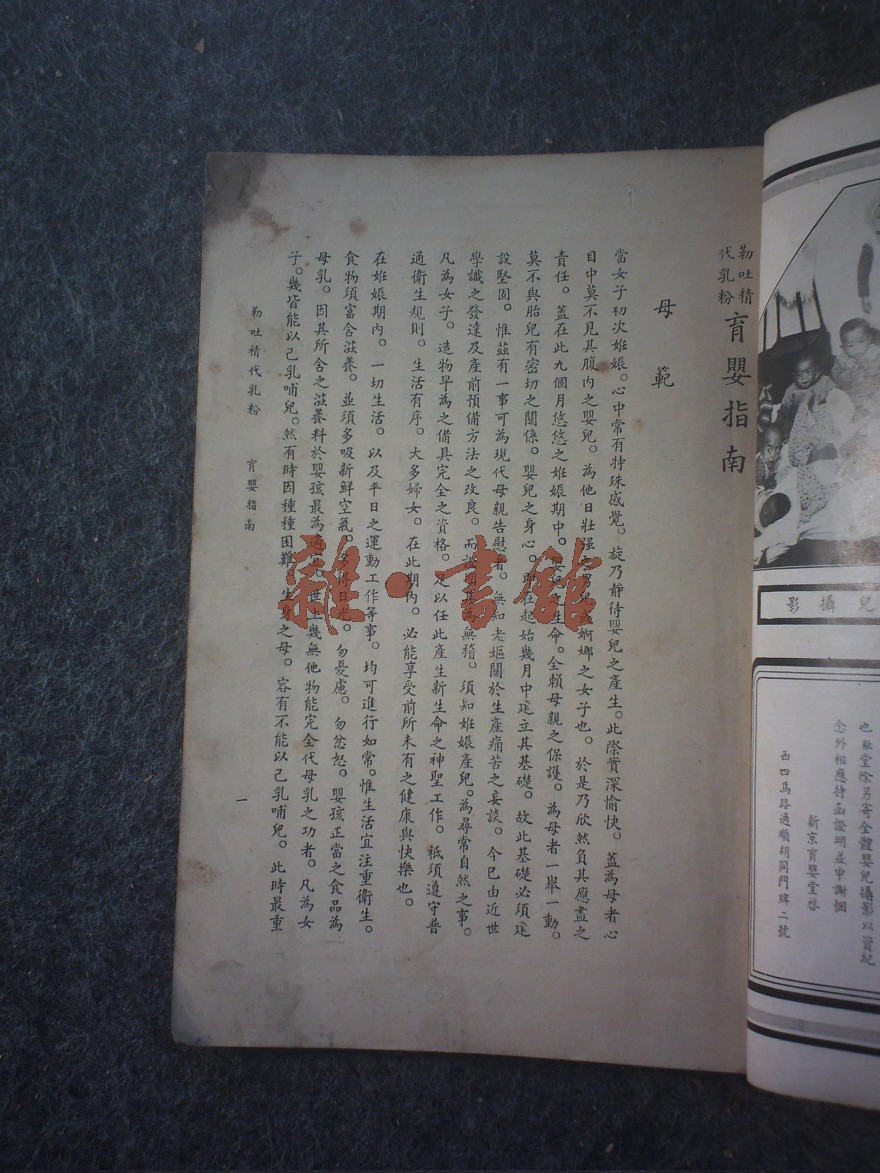 影攝兒
也敝堂除另寄全體嬰兒攝影以資紀
念外相應持函證明並申謝悃
新京育嬰堂啓
西四馬路通順胡同門牌二號
勒吐精
代乳粉
育嬰指南
母範
當女子初次姙娠。心中常有特殊感覺。旋乃靜待嬰兒之產生。此際實深愉快。蓋為母者心
目中莫不見其腹內之嬰兒。為他日壯强之男兒或婀娜之女子也。於是乃欣然負其應盡之
責任。蓋在此九個月悠悠之姙娠期中。嬰兒之生命。全賴母親之保護。為母者一舉一動。
莫不與胎兒有密切之關係。嬰兒之身心。即在起始幾月中建立其基礎。故此基礎必須建
設堅固。惟茲有一事可為現代母親告慰者。無知老嫗關於生產痛苦之妄談。今已由近世
學識之發達及產前預備方法之改良。而證明其為無稽。須知姙娠產兒。為尋常自然之事。
凡為女子。造物早為之備具完全之資格。足以任此產生新生命之神聖工作。祗須遵守普
通衛生規則。生活有序。大多婦女。在此期內。必能享受前所未有之健康與快樂也。
在姙娠期內。一切生活。以及平日之運動工作等事。均可進行如常。惟生活宜注重衛生。
食物須富含滋養。並須多吸新鮮空氣。多得日光。勿憂慮。勿忿怒。嬰孩正當之食品為
母乳。因其所含之滋養料於嬰孩最為適宜。世上幾無他物能完全代母乳之功者。凡為女
子。幾皆能以己乳哺兒。然有時因種種困難。生身之母。容有不能以己乳哺兒。此時最重
勒吐精代乳粉 育嬰指南
一
雜·書館